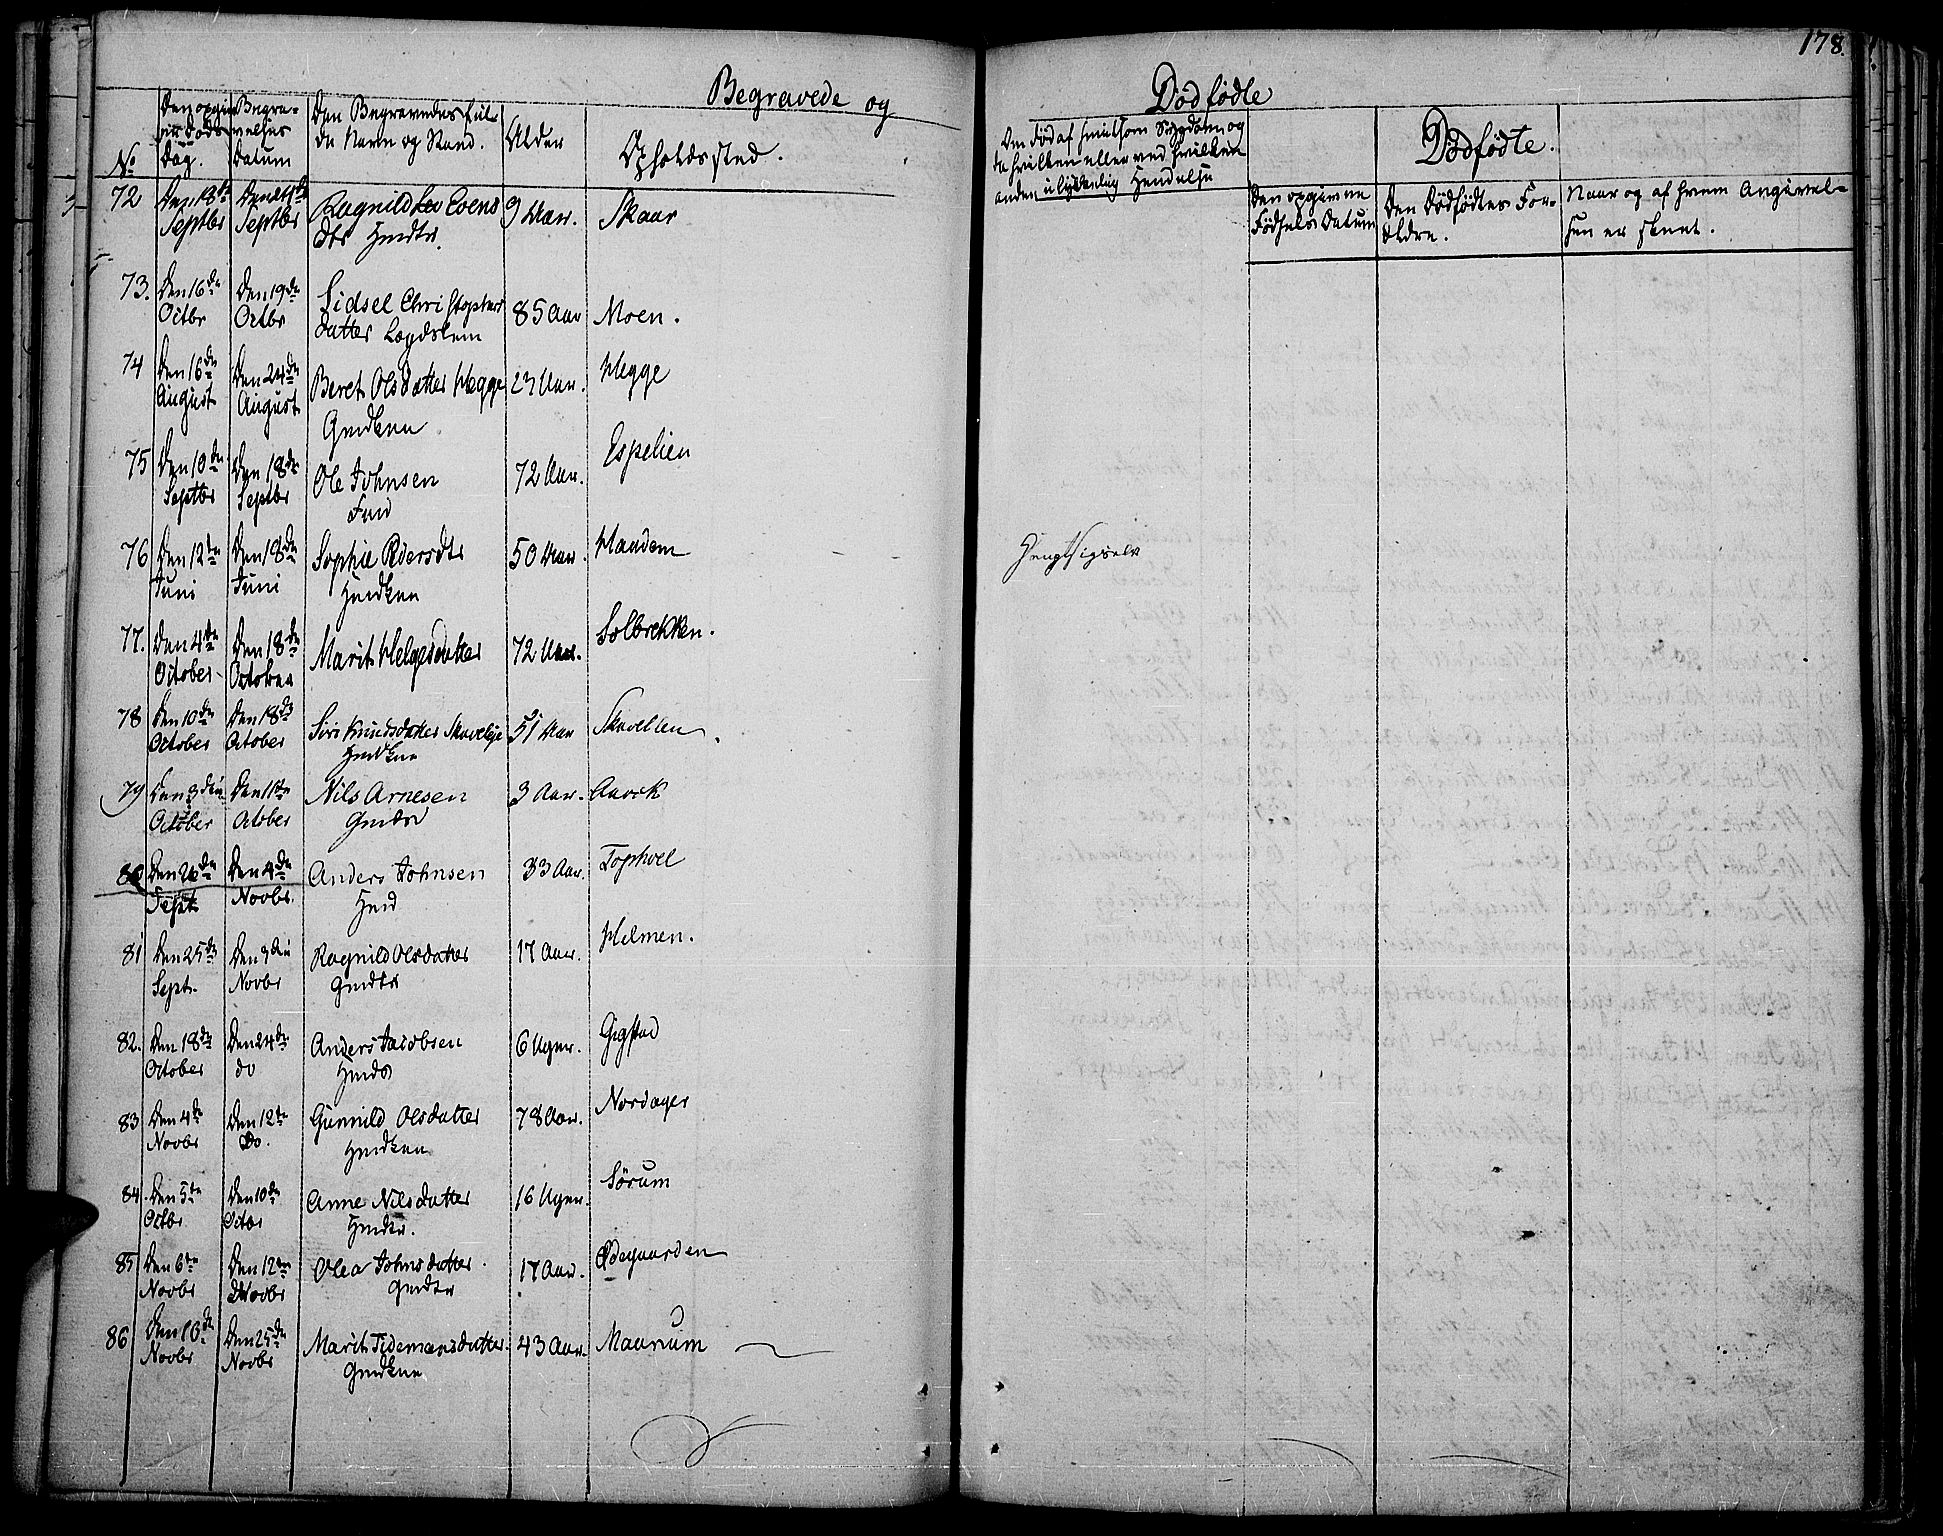 178.
Begravede og Dødfødte
No
Den opgivne Døds Dag.
Begravelses Datum
Den Begravedes fulde Navn og Stand.
Alder
Opholdssted.
Om Død af smitsom Sygdom og da hvilken eller ved hvilken anden ulykkelig Hendelse
Dødfødte.
Den opgivne Fødsels Datum
Den Dødfødtes Forældre.
Naar og af hvem Angivelsen er skeet.
72 Den 18de Septbr Den 24de Septbr Ragnild Evens
dtr Huusdtr. 9 Aar. Skaar
73. Den 16de Octbr Den 19de Octbr Sidsel Christophers
datter Lægdslem 85 Aar Moen.
74 Den 16de August Den 24de August Beret Olsdatter Hegge 23 Aar. Hegge
Gmdkna
75 Den 10de Septbr Den 18de Septbr Ole Johnsen 72 Aar. Espelien
76 Den 12te Juni Den 18de Juni Sophie Pedersdtr 50 Aar. Haadem Hengt sig selv
Husdkna
77. Den 4de October Den 18de October Marit Helgesdatter 72 Aar. Solbrekken.
78 Den 10de October Den 18de October Siri Knudsdatter 51 Aar Skavellen
Husdkna
79 Den 3die October Den 11te October Nils Arnesen 3 Aar. Aarek
80 Den 26de Sept Den 4de Novbr. Anders Johnsen 33 Aar. Tophoel
81 Den 25de Sept. Den 3die Novbr Ragnild Olsdatter 17 Aar. Helmen.
Gmdtr
82. Den 18de October Den 24de do Anders Jacobsen 6 Uger. Gigstad
83 Den 4de Novbr Den 12te Do. Gunnild Olsdatter 78 Aar. Nordager
Husdkna
84. Den 5te Octbr Den 10de Octbr Anne Nilsdatter 16 Uger. Sørum
Husdtr.
85 Den 6te Novbr Den 12te Novbr Olea Johnsdatter 17 Aar. Ødegaarden
Gmdtr
86 Den 16de Novbr Den 25de Novbr Marit Tidemansdatter. 43 Aar. Maurum
Gmdkna